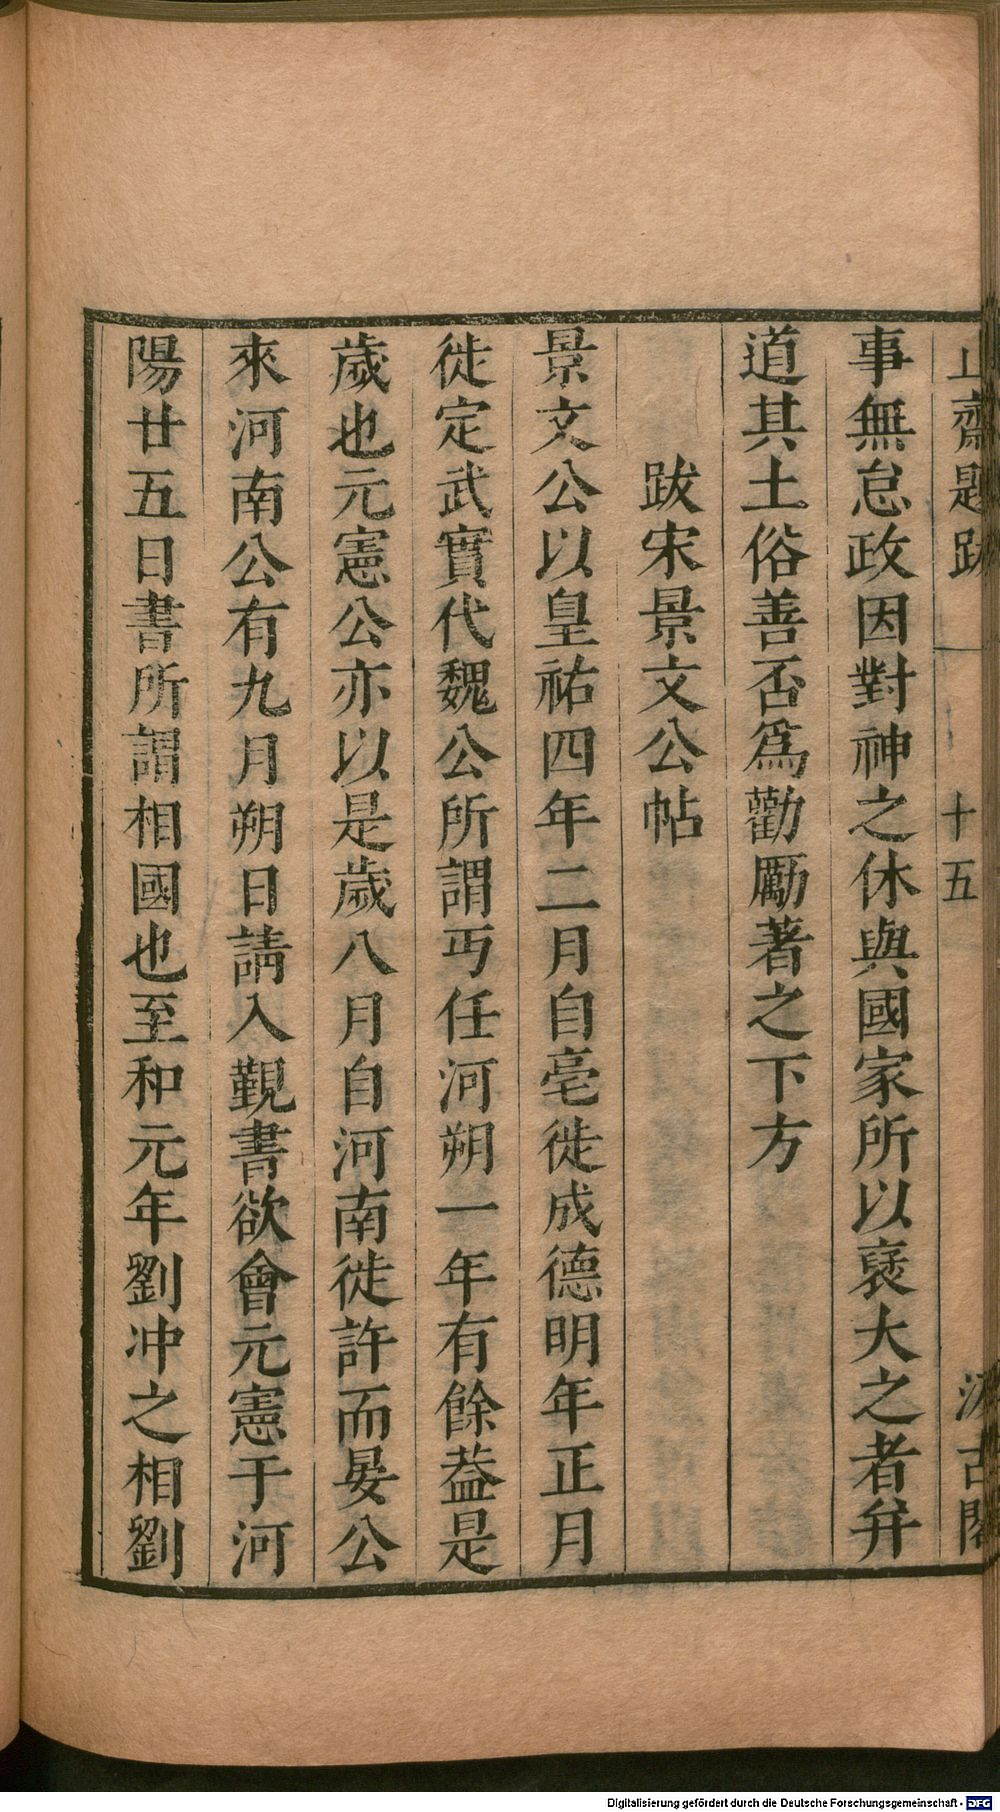 止齋題跋　十五　汲古閣
事無怠政因對神之休與國家所以襃大之者并
道其土俗善否爲勸勵著之下方
跋宋景文公帖
景文公以皇祐四年二月自亳徙成德明年正月
徙定武實代魏公所謂丏任河朔一年有餘葢是
歲也元憲公亦以是歲八月自河南徙許而晏公
來河南公有九月朔日請入覲書欲會元憲于河
陽廿五日書所謂相國也至和元年劉冲之相劉
Digitalisierung gefördert durch die Deutsche Forschungsgemeinschaft - DFG